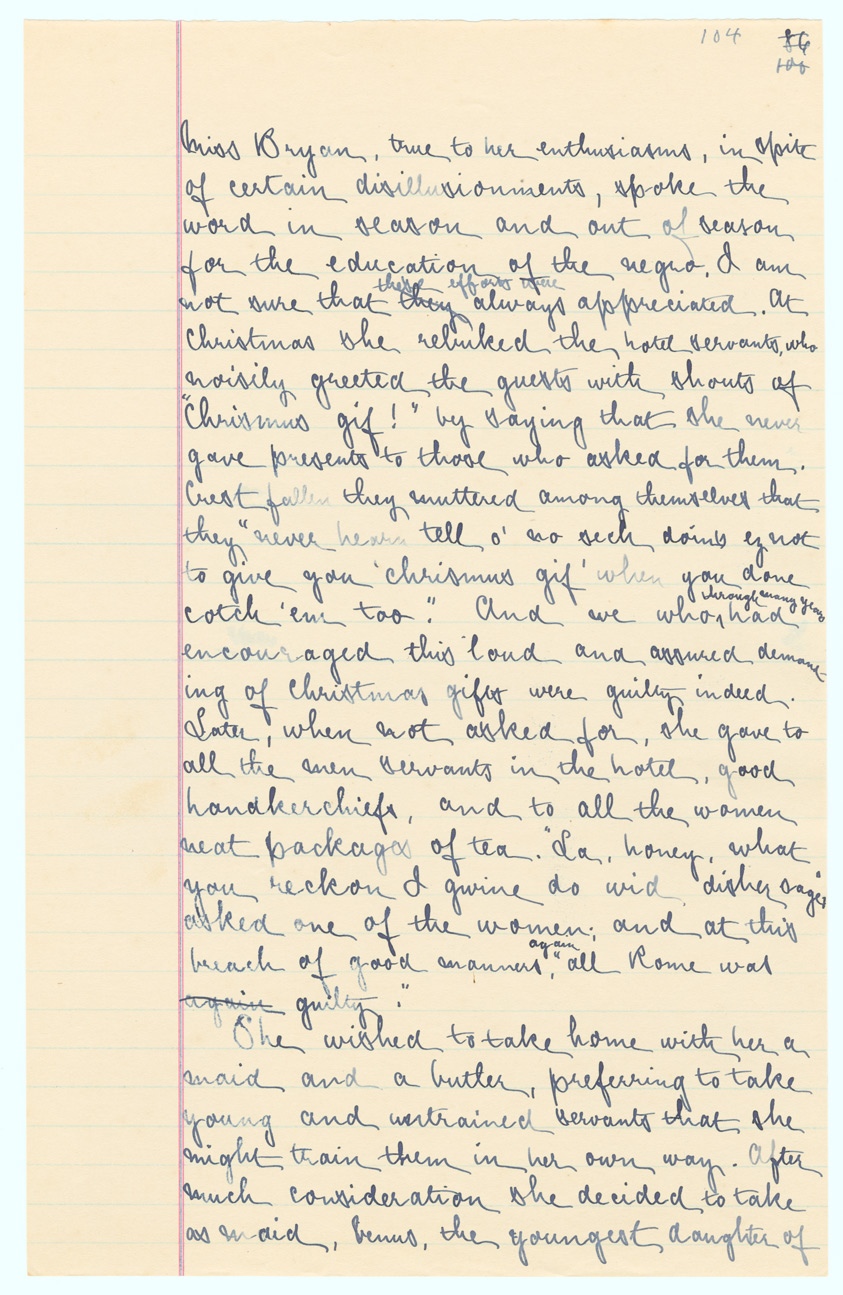 104 86
100
Miss Bryan, true to her enthusiasms, in spite
of certain disillusionments, spoke the
word in season and out of season
for the education of the negro. I am
these efforts were
not sure that they always appreciated. At
Christmas she rebuked the hotel servants, who
noisily greeted the guests with shouts of
"Chrismus gif!" by saying that she never
gave presents to those who asked for them.
Crest fallen they muttered among themselves that
they "never hearn tell o' no sech doin's ez not
to give you 'chrismus gif' when you done
cotch 'em too." And we who, had
through many years
encouraged this loud and assured demand-
ing of Christmas gifts were guilty indeed.
Later, when not asked for, she gave to
all the men servants in the hotel, good
handkerchiefs, and to all the women
neat packages of tea. "La, honey, what
you reckon I gwine do wid disher sage"
asked one of the women; and at this
again
breach of good manners, "all Rome was
again guilty."
She wished to take home with her a
maid and a butler, preferring to take
young and untrained servants that she
might train them in her own way. After
much consideration she decided to take
as maid, Venus, the youngest daughter of